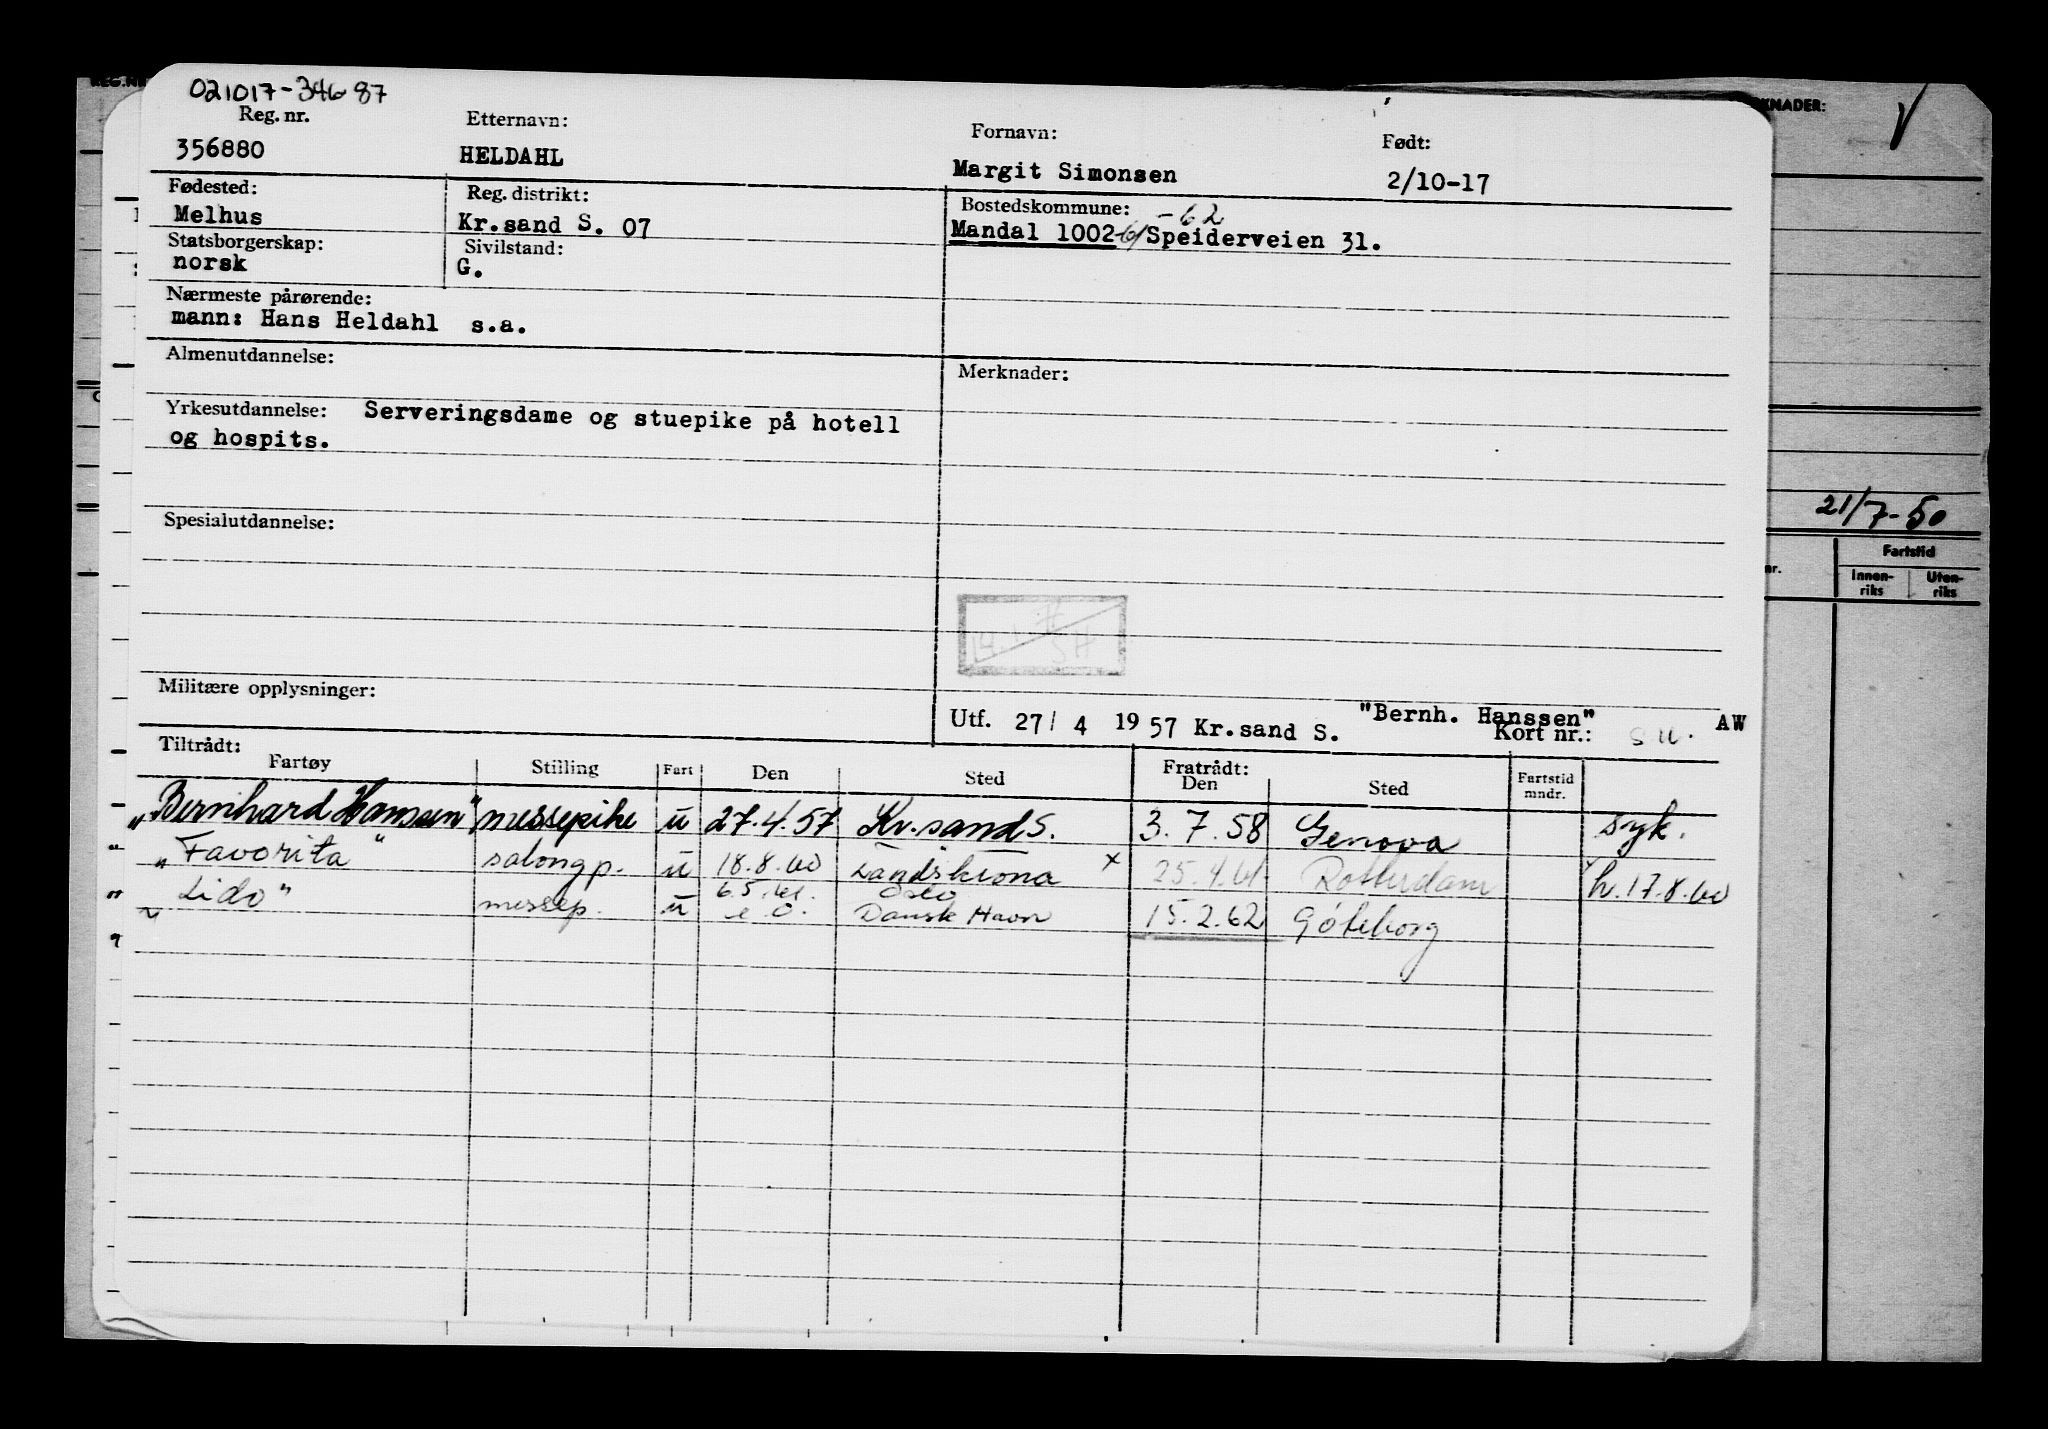 REG.NR
KNADER:
021017-34687
Reg. nr. Etternavn: Fornavn: Født:
356880 HELDAHL Margit Simonsen 2/10-17
Fødested: Reg. distrikt: Bostedskommune: -62
Melhus Kr.sand S. 07 Mandal 1002-61 Speiderveien 31.
Statsborgerskap: Sivilstand:
norsk G.
Nærmeste pårørende:
mann: Hans Heldahl s.a.
Almenutdannelse: Merknader:
Yrkesutdannelse: Serveringsdame og stuepike på hotell
og hospits.
21/7-50
Spesialutdannelse:
Fartstid
nr. Innen-riks Uten-riks
Militære opplysninger:
Utf. 27/ 4 1957 Kr.sand S. "Bernh. Hanssen" AW
Kort nr.:
Tiltrådt: Fratrådt:
Fartøy Stilling Fart Den Sted Den Sted Fartstid mndr.
"Bernhard Hanssen" messepike u 27.4.57 Kr.sand S. 3.7.58 Genova syk.
"Favorita" salongp. u 18.8.60 Landskrona x 25.4.61 Rotterdam h.17.8.60
"Lido" messep. u 6.5.61. Oslo
e.O. Dansk Havn 15.2.62 Göteborg